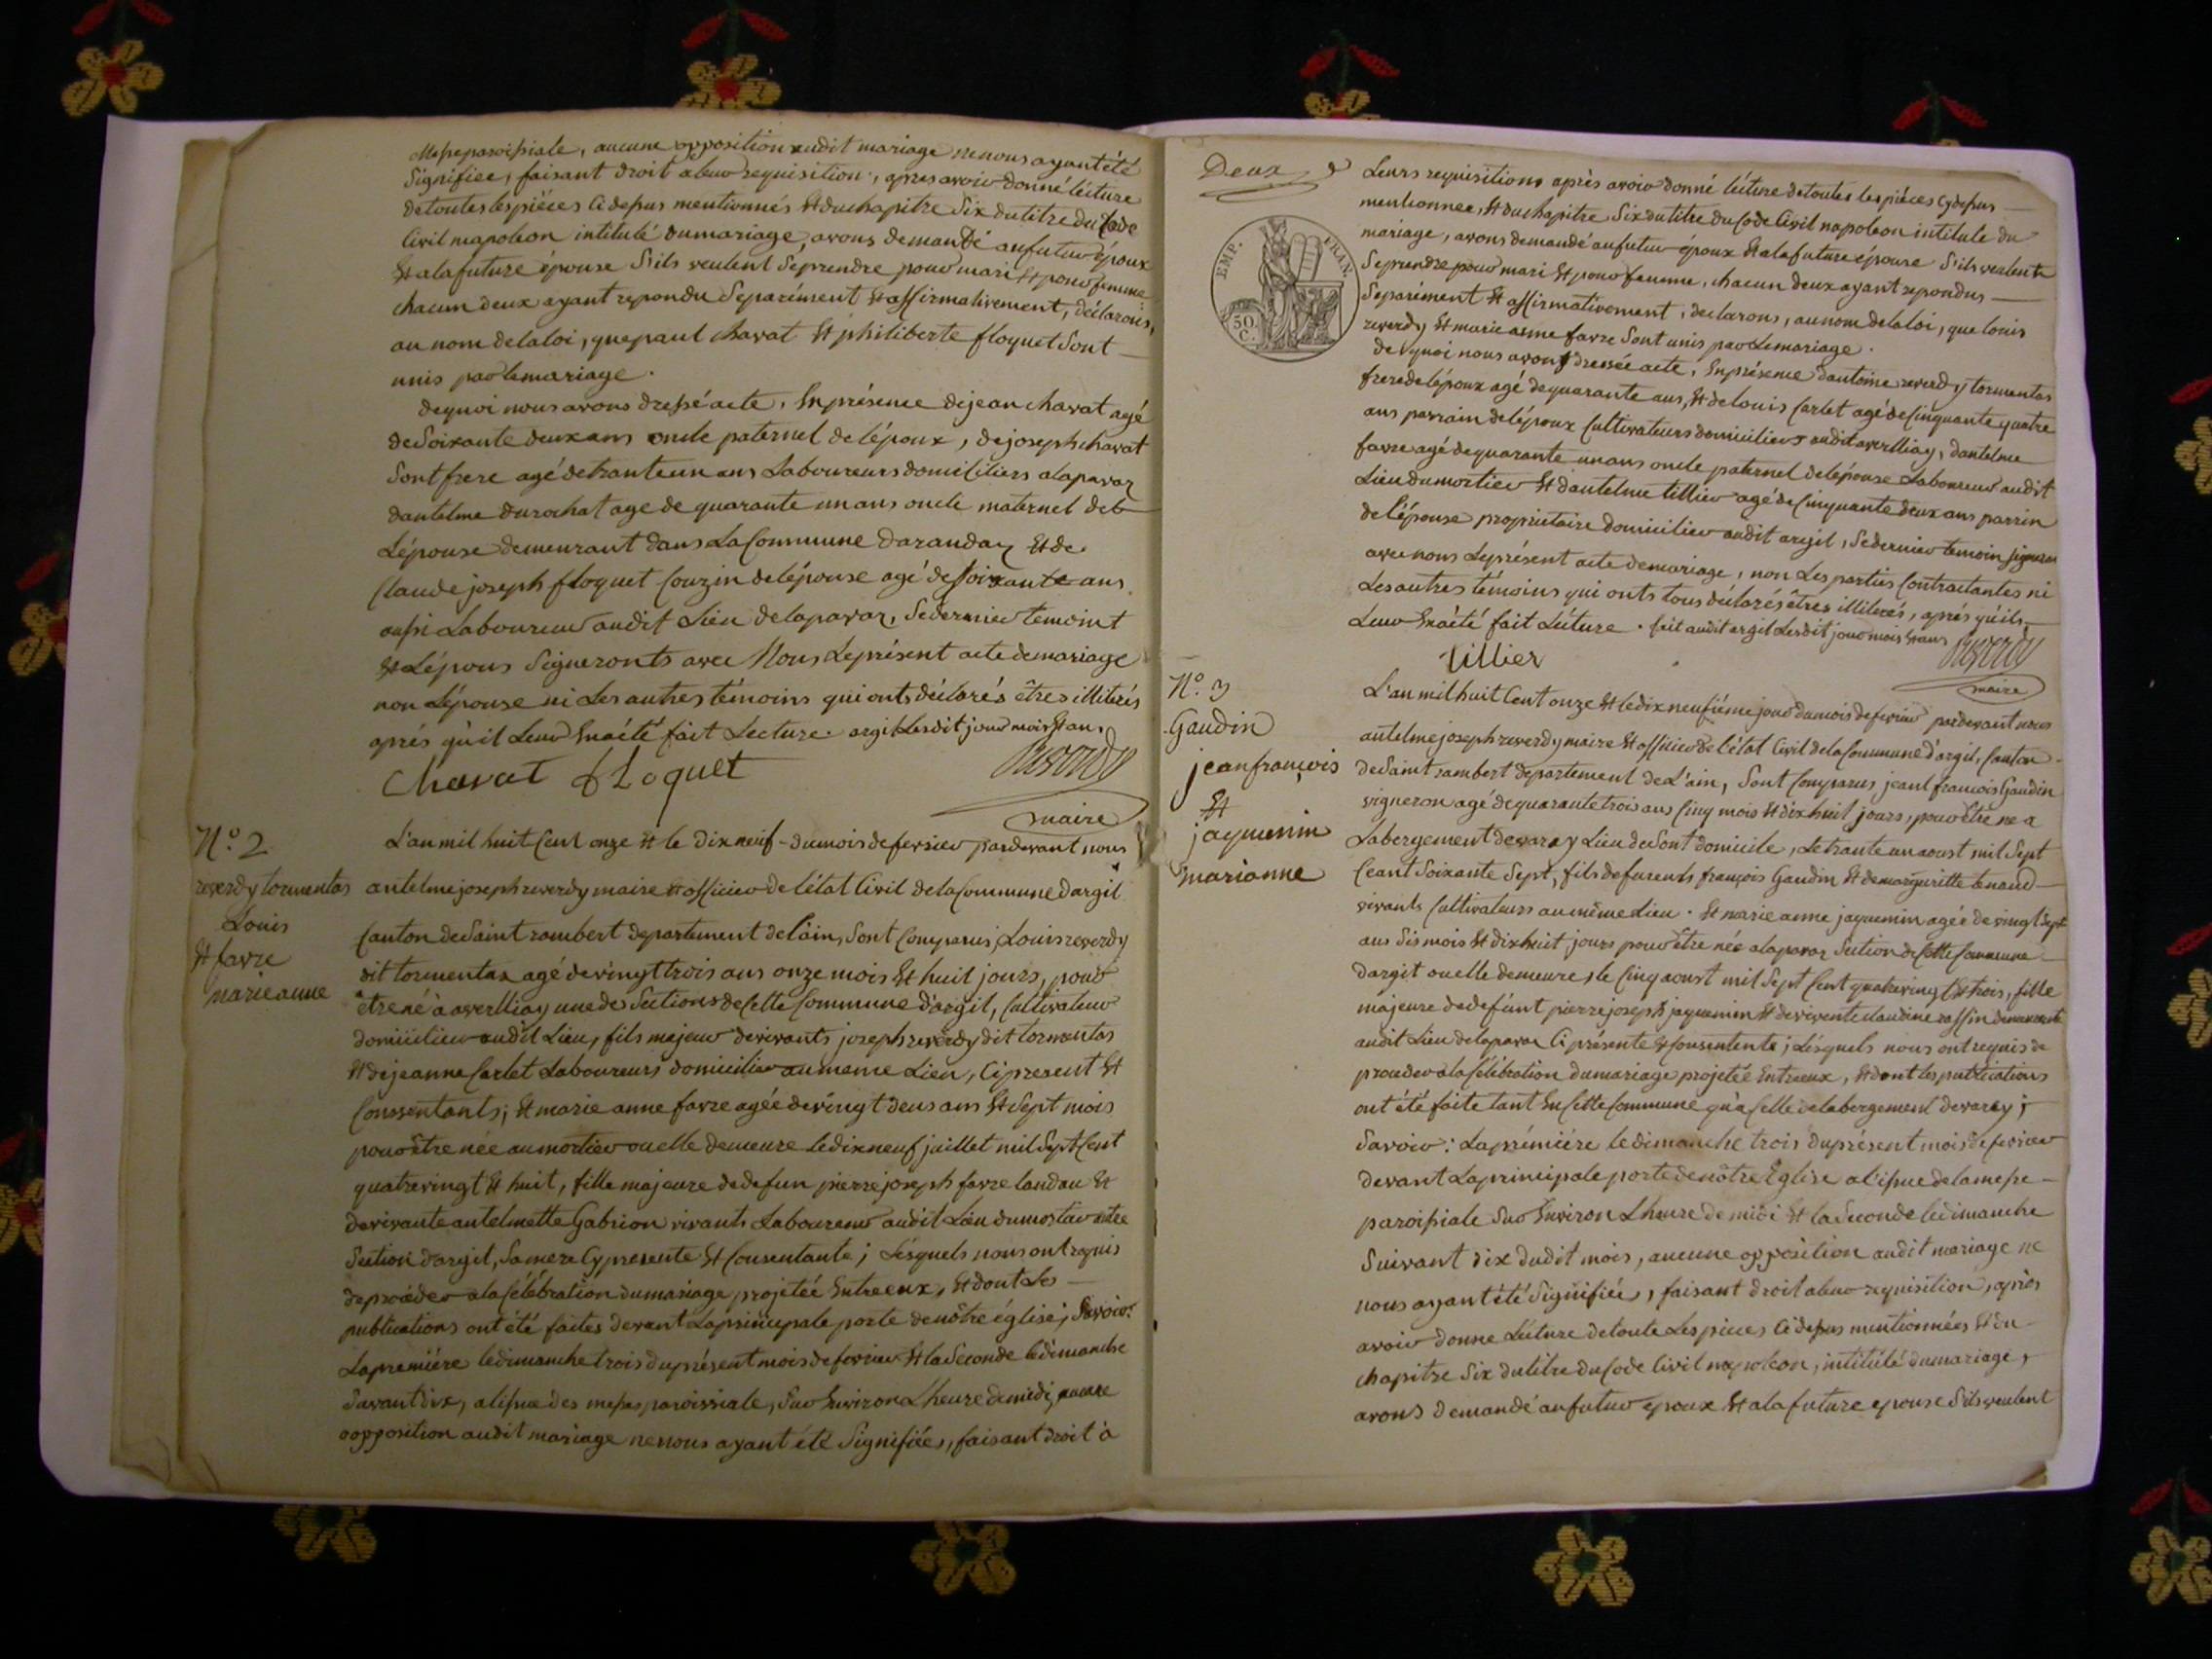 Messe paroissiale, aucune opposition audit mariage ne nous ayant été
Signifiée, faisant droit aleur requisition, apres avoir donné lécture
de toutes les pièces Cidessus mentionnés Et du chapitre Six du titre du Code
Civil napoleon intitulé du mariage, avons demandé au futur époux
Et ala future épouse S'ils veulent Se prendre pour mari Et pour femme
chacun deux ayant repondu Separément Et affirmativement, déclarons,
au nom de la loi, que paul chavat Et philiberte floquet Sont
unis par le mariage.
de quoi nous avons dressé acte, En présence de jean chavat agé
de Soixante deux ans oncle paternel de lépoux, de joseph chavat
Sont frere agé de trante un ans Laboureurs domiciliers alapavaz
dantelme durochat age de quarante un ans oncle maternel de
Lépouse demeurant dans La Commune Darandaz Et de
Claude joseph floquet Couzin de lépouse agé de Soixante ans
aussi Laboureur audit Lieu de lapavaz, Se dernier temoint
Et Lépous Signeronts avec Nous Le présent acte de mariage
non Lépouse ni Les autres témoins qui onts déclarés êtres illitérés
aprés qu'il Leur En a été fait Lecture. argit Les dit jour mois Et an,
Chavat floquet
Reverdy
maire
N.° 2
reverdy tormentas
Louis
Et favre
marie anne
L'an mil huit Cent onze Et le dix neuf du mois de fevrier pardevant nous
antelme joseph reverdy maire Et officier de l'état Civil de la Commune dargit
Canton de Saint rambert departement de l'ain, Sont Comparus Louis reverdy
dit tormentas agé de vingt trois ans onze mois Et huit jours, pour
être né à averlliay une des Sections de Cette Commune d'argit, Cultivateur
domicilier audit Lieu, fils majeur de vivants joseph reverdy dit tormentas
Et de jeanne Carlet Laboureurs domicilier au meme Lieu, Ci present Et
Conssentants; Et marie anne favre agée de vingt deus ans Et Sept mois
pour être née au mortier ou elle demeure Le dix neuf juillet mil Sept Cent
quatre vingt Et huit, fille majeure de defun pierre joseph favre landau Et
de vivante antelmette Gabrion vivants Laboureur audit Lieu du mortier
Section d'argit, Sa mere Cy presente Et Consentante; Lésquels nous ont requis
de procéder ala Célébration du mariage projetée Entre eux, Et dont Les
publications ont été faites devant La principale porte de nôtre église; Savoir:
La premiére le dimanche trois du présent mois de fevrier Et la Seconde le dimanche
Suvant dix, a lissue des messes paroissiale, Sur Environ Lheure de midi, aucune
oopposition audit mariage ne nous ayant été Signifiée, faisant droit à
Deux
EMP. FRAN.
50 C.
Leurs requisitions après avoir donné lécture de toutes les piéces Cy dessus
mentionnee, Et du chapitre Six du titre du Code Civil napoleon intitule du
mariage, avons demandé au futur époux Et ala future épouse S'ils veulent
Se prendre pour mari Et pour femme, chacun deux ayant repondus
Separément Et affirmativement, declarons, au nom de la loi, que louis
reverdy Et marie anne favre Sont unis par Le mariage.
de quoi nous avons dressée acte, En présence dantoine reverdy tormentas
frere de lépoux agé de quarante ans, Et de louis Carlet agé de Cinquante quatre
ans parrain de lépoux Cultivateurs domiciliers audit averlliay, dantelme
favre agé de quarante un ans oncle paternel de lépouse Laboureur audit
Lieu du mortier Et dantelme tillier agé de Cinquante deux ans parrin
de l'épouse propriétaire domicilier audit argit, Se dernier temoin Signera
avec nous Le présent acte de mariage, non Les parties Contractantes ni
Les autres témoins qui onts tous déclarés êtres illiterés, aprés qu'ils
Leur En a été fait Lécture. fait audit argit Les dit jour mois Et ans
tillier
Reverdy
maire
N.° 3
Gaudin
jean françois
Et
jaquemin
marianne
L'an mil huit Cent onze Et le dix neufiéme jour du mois de fevrier pardevant nous
antelme joseph reverdy maire Et officier de l'état Civil de la Commune d'argit, Canton
de Saint rambert departement de L'ain, Sont Comparus, jeant francois Gaudin
vigneron agé de quarante trois ans Cinq mois Et dix huit jours, pour être ne a
Labergement de varey Lieu de Sont domicile, Le trante un aoust mil Sept
Ceant Soixante Sept, fils de furents françois Gaudin Et de marguritte tenand
vivants Cultivateurs au même Lieu. Et marie anne jaquemin agée de vingt Sept
ans Sis mois Et dix huit jours pour être née alapavaz Section de Cette Commune
dargit ou elle demeure, le Cinq aoust mil Sept Cent quatre vingt Et trois, fille
majeure de defunt pierre joseph jaquemin Et de vivente claudine raffin demeurante
audit Lieu de lapavaz Ci présente Et Consentente; Lésquels nous ont requis de
proceder ala Célébration du mariage projetée Entr'eux, Et dont les publications
ont été faite tant En Cette Commune qu'a Celle de labergement de varey;
Savoir: La prémiére le dimanche trois du présent mois de fevrier
devant La principale porte de nôtre Eglise a l'issue de la messe
paroissiale Sur Environ L'heure de midi Et la Seconde le dimanche
Suivant dix dudit mois, aucune opposition audit mariage ne
nous ayant été Signifiée, faisant droit aleur requisition, après
avoir donne Lécture de toute Les pieces Ci dessus mentionnées Et du
chapitre Six du titre du Code Civil napoleon, intitulé du mariage,
avons demandé au futur epoux Et ala future epouse S'ils veulent